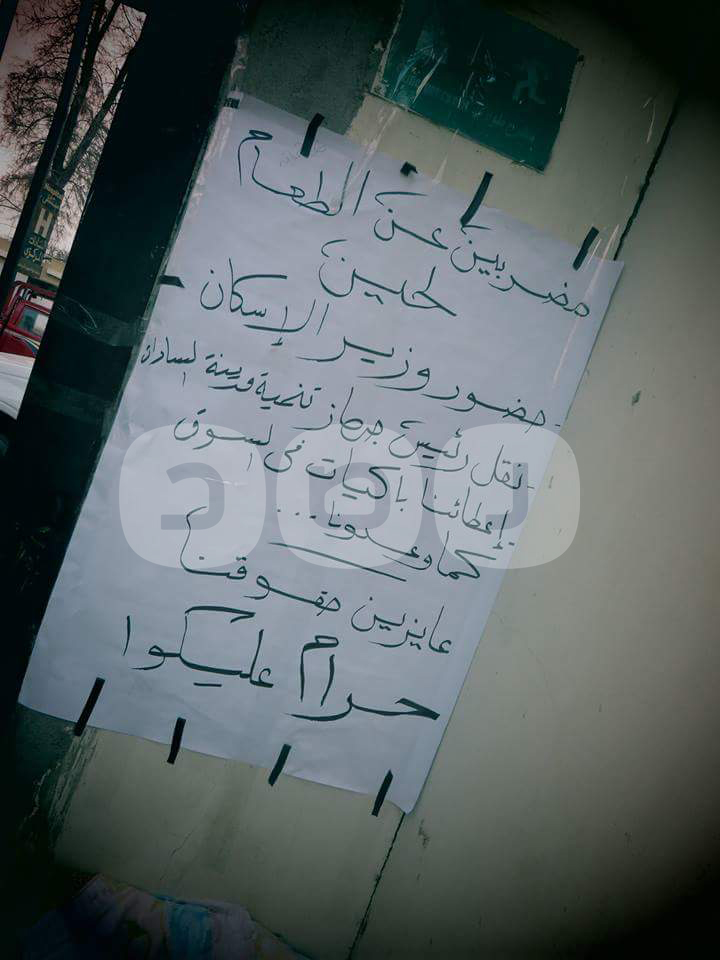 مضربين عن الطعام
لحين
- حضور وزير الإسكان
- نقل رئيس جهاز تنمية مدينة السادات
- إعطائنا باكيات فى السوق
كما وعدونا...
عايزين حقوقنا
حرام عليكوا
H